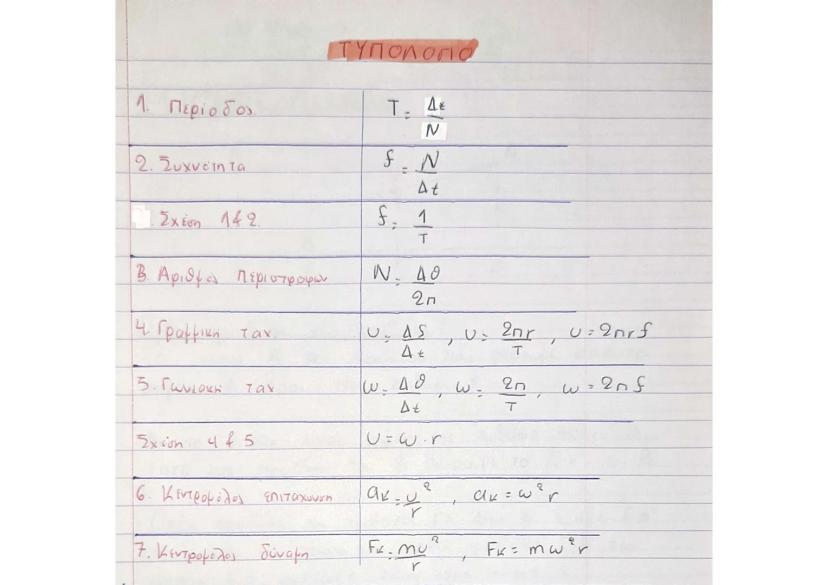 ΤΥΠΟΛΟΓΙΟ
1. Περίοδος T = Δt/N
2. Συχνότητα f = N/Δt
Σχέση 1 & 2 f = 1/T
3. Αριθμός περιστροφών N = Δθ/2π
4. Γραμμική ταχ. υ = ΔS/Δt , υ = 2πr/T , υ = 2πrf
5. Γωνιακή ταχ ω = Δθ/Δt , ω = 2π/T , ω = 2πf
Σχέση 4 & 5 υ = ω · r
6. Κεντρομόλος επιτάχυνση ακ = υ²/r , ακ = ω²r
7. Κεντρομόλος δύναμη Fκ = mυ²/r , Fκ = mω²r